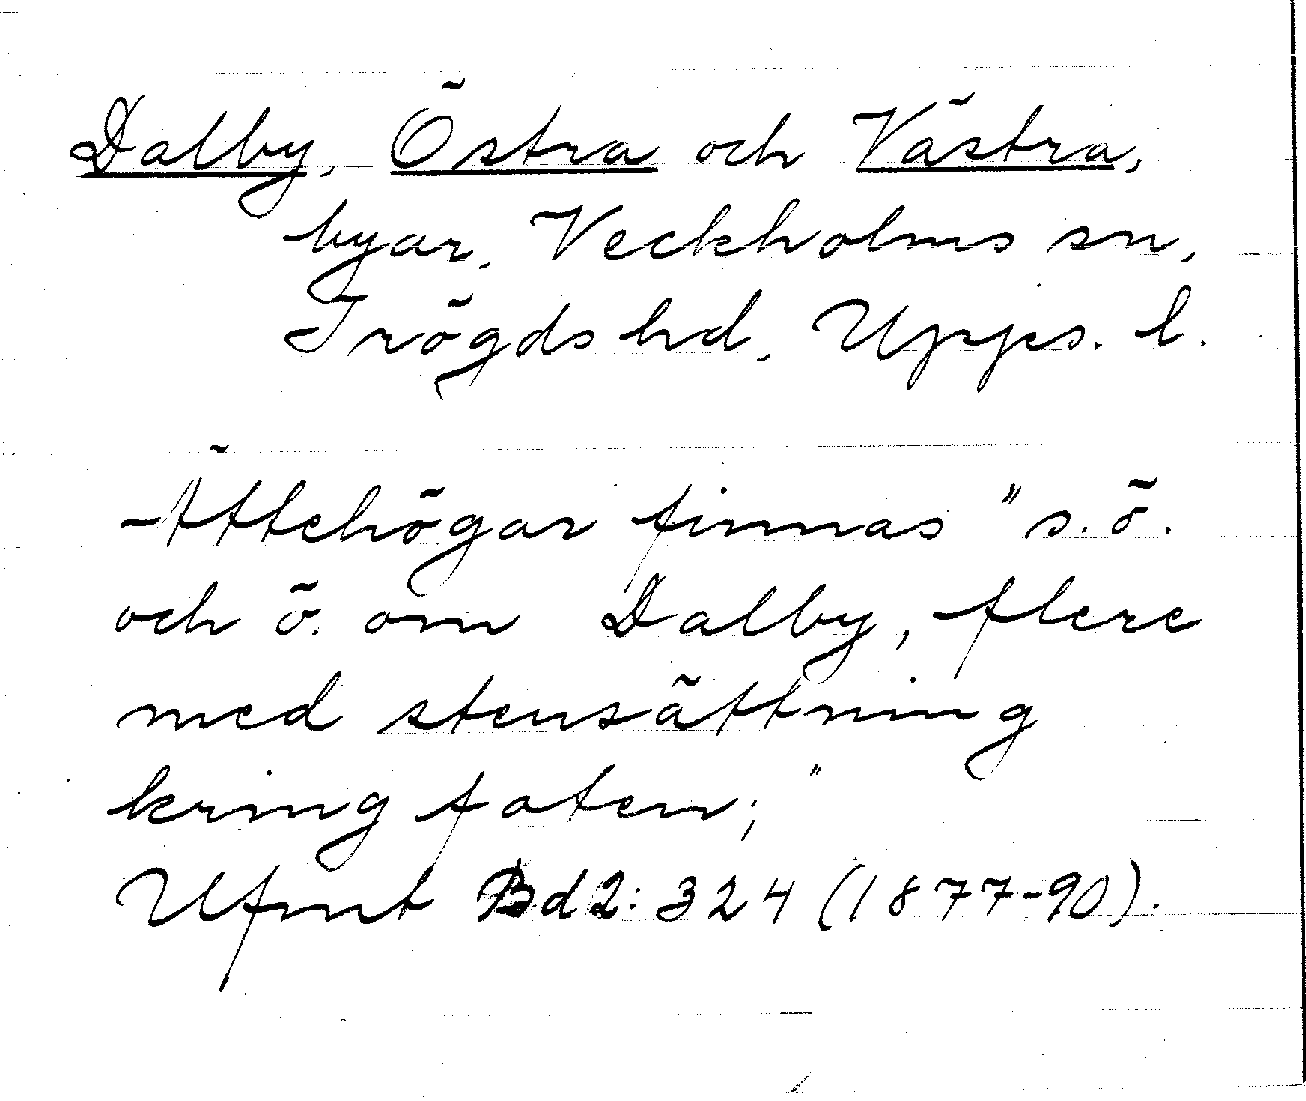 Dalby, Östra och Västra,
byar, Veckholms sn,
Trögds hd, Upps. l.
Ättehögar finnas "s.ö.
och ö. om Dalby, flere
med stensättning
kring foten;"
Ufmt Bd 2: 324 (1877-90).